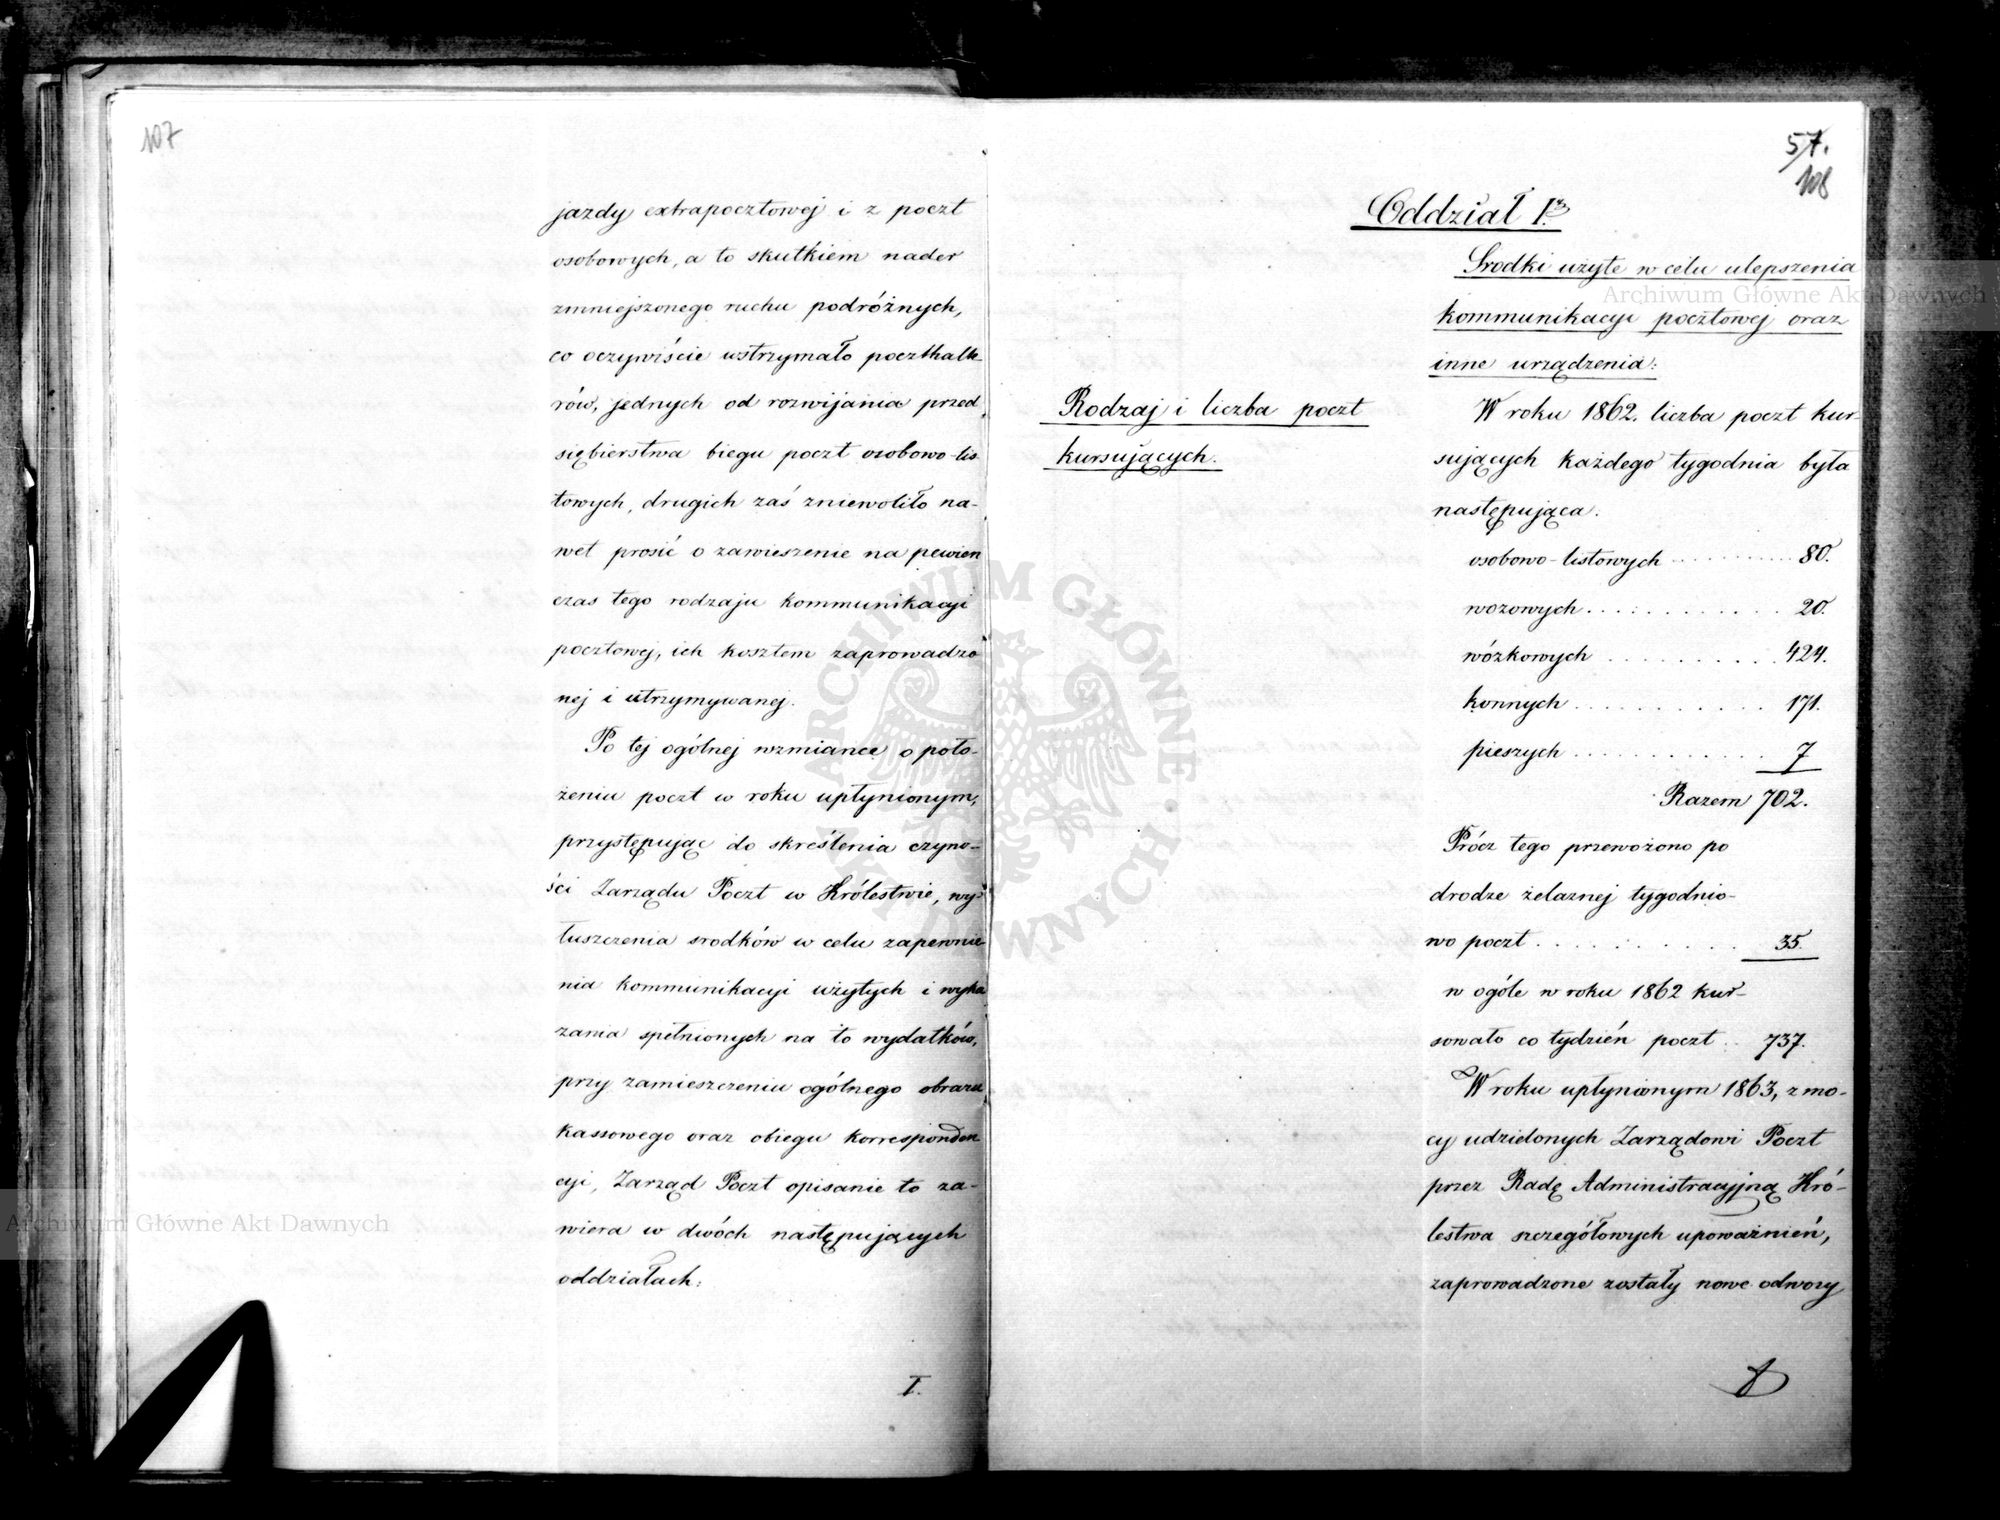 107
jazdy extrapocztowej i z poczt
osobowych, a to skutkiem nader
zmniejszonego ruchu podróżnych,
co oczywiście wstrzymało poczthalte-
rów, jednych od rozwijania przed-
siębierstwa biegu poczt osobowo-lis-
towych, drugich zaś zniewoliło na-
wet prosić o zawieszenie na pewien
czas tego rodzaju kommunikacyi
pocztowej, ich kosztem zaprowadzo-
nej i utrzymywanej.
Po tej ogólnej wzmiance o poło-
żeniu poczt w roku upłynionym,
przystępując do skreślenia czyno-
ści Zarządu Poczt w Królestwie, wy-
łuszczenia srodków w celu zapewnie-
nia kommunikacyi użytych i wyka-
zania spełnionych na to wydatków,
przy zamieszczeniu ogólnego obrazu
kassowego oraz obiegu korresponden-
cyi, Zarząd Poczt opisanie to za-
wiera w dwóch następujących
oddziałach:
I.
57.
108
Oddział I.
Srodki użyte w celu ulepszenia
kommunikacyi pocztowej oraz
inne urządzenia:
Rodzaj i liczba poczt
kursujących.
W roku 1862. liczba poczt kur-
sujących każdego tygodnia była
następująca:
osobowo-listowych . . . . . . . . 80.
wozowych . . . . . . . . . . . 20.
wózkowych . . . . . . . . . . 424.
konnych . . . . . . . . . . . 171.
pieszych . . . . . . . . . . . 7
Razem 702.
Prócz tego przewożono po
drodze żelaznej tygodnio-
wo poczt . . . . . . . . . . . 35.
w ogóle w roku 1862 kur-
sowało co tydzień poczt . . 737.
W roku upłynionym 1863, z mo-
cy udzielonych Zarządowi Poczt
przez Radę Administracyjną Kró-
lestwa szczegółowych upoważnień,
zaprowadzone zostały nowe odwozy
Archiwum Główne Akt Dawnych
Archiwum Główne Akt Dawnych
ARCHIWUM GŁÓWNE AKT DAWNYCH